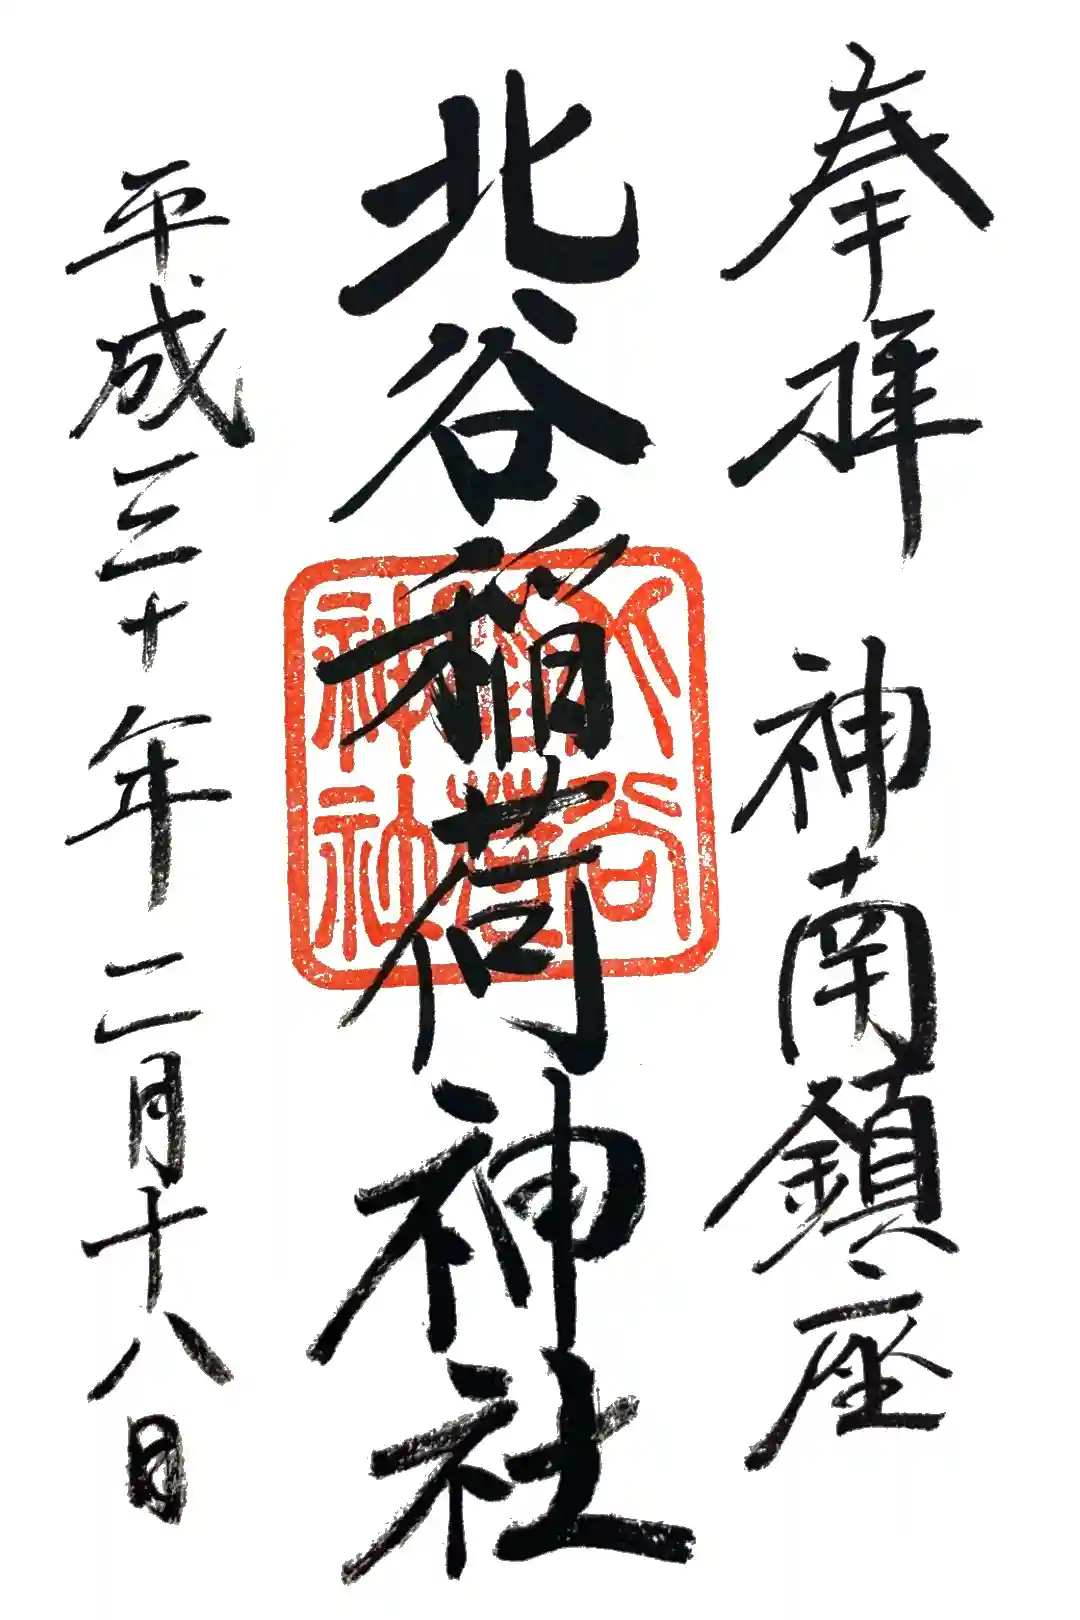 奉拝　神南鎮座
北谷稲荷神社
北谷
稲荷
神社
平成三十年二月十八日